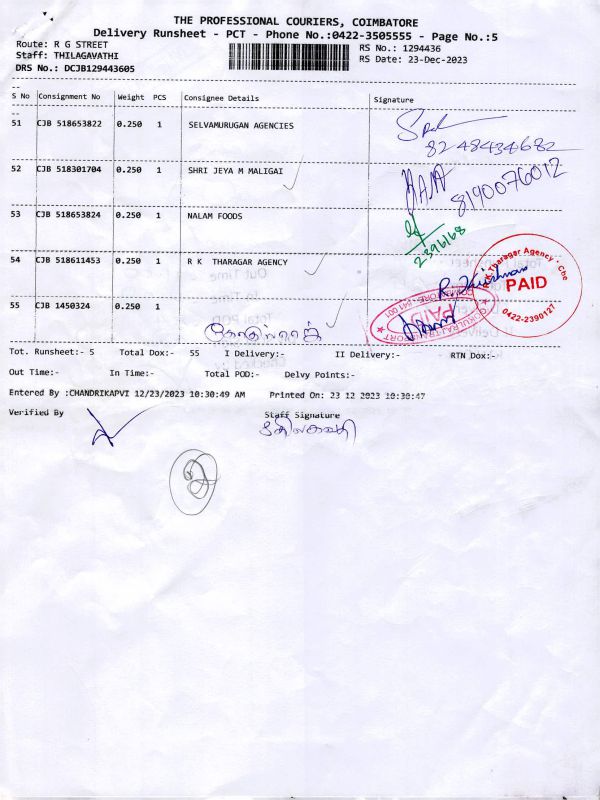 THE PROFESSIONAL COURIERS, COIMBATORE
Delivery Runsheet - PCT - Phone No.:0422-3505555 - Page No.:5
Route: R G STREET
RS No.: 1294436
Staff: THILAGAVATHI
RS Date: 23-Dec-2023
DRS No.: DCJB129443605
S No Consignment No Weight PCS Consignee Details Signature
51 CJB 518653822 0.250 1 SELVAMURUGAN AGENCIES
8248434682
52 CJB 518301704 0.250 1 SHRI JEYA M MALIGAI
8190076012
53 CJB 518653824 0.250 1 NALAM FOODS
2396168
54 CJB 518611453 0.250 1 R K THARAGAR AGENCY
Tharagar Agency - Che
PAID
0422-2390127
55 CJB 1450324 0.250 1
PAID
Tot. Runsheet:- 5 Total Dox:- 55 I Delivery:- II Delivery:- RTN Dox:-
Out Time:- In Time:- Total POD:- Delvy Points:-
Entered By :CHANDRIKAPVI 12/23/2023 10:30:49 AM Printed On: 23 12 2023 10:30:47
Verified By Staff Signature